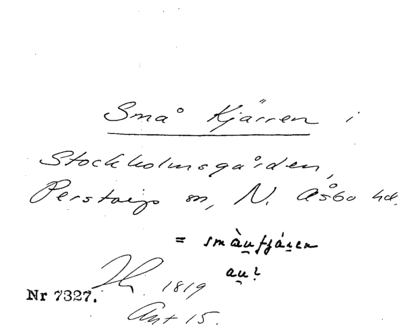 Små Kjärren i
Stockholmsgården,
Perstorps sn, N. Åsbo hd.
= småu̯fjáren
au̯?
1819
Nr 7327.
Ant 15.